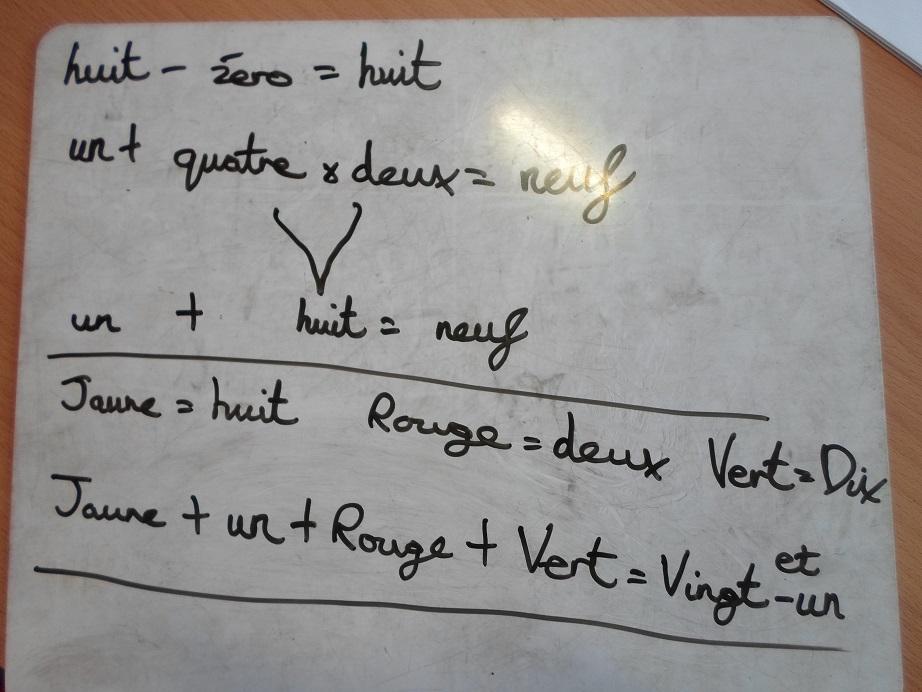 huit - zéro = huit
un + quatre x deux = neuf
un + huit = neuf
Jaune = huit Rouge = deux Vert = Dix
Jaune + un + Rouge + Vert = Vingt et -un